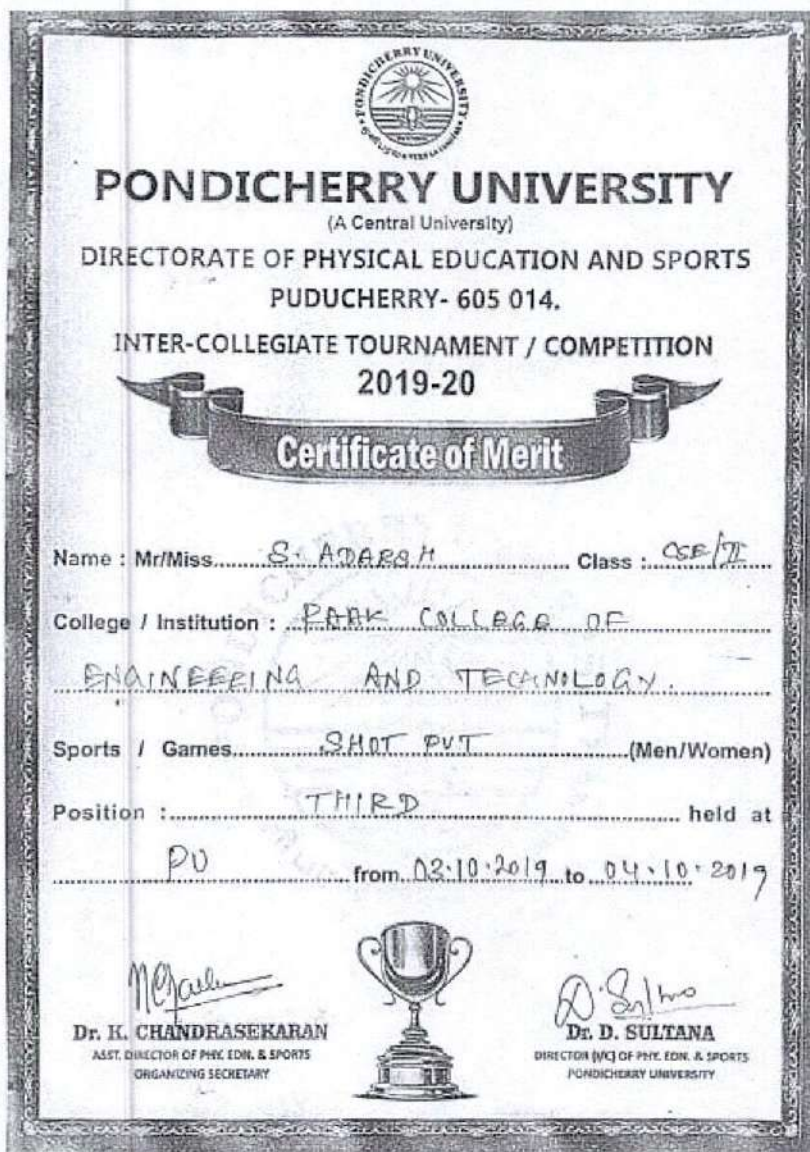 PONDICHERRY UNIVERSITY
PONDICHERRY UNIVERSITY
(A Central University)
DIRECTORATE OF PHYSICAL EDUCATION AND SPORTS
PUDUCHERRY- 605 014.
INTER-COLLEGIATE TOURNAMENT / COMPETITION
2019-20
Certificate of Merit
Name : Mr/Miss........S. ADARSH........ Class : CSE/II
College / Institution : PAAK COLLEGE OF
ENGINEERING AND TECHNOLOGY.
Sports / Games........SHOT PUT........(Men/Women)
Position :........THIRD........ held at
PU ........from 03.10.2019 to 04.10.2019
Dr. K. CHANDRASEKARAN
ASST. DIRECTOR OF PHY. EDN. & SPORTS
ORGANIZING SECRETARY
Dr. D. SULTANA
DIRECTOR (I/C) OF PHY. EDN. & SPORTS
PONDICHERRY UNIVERSITY